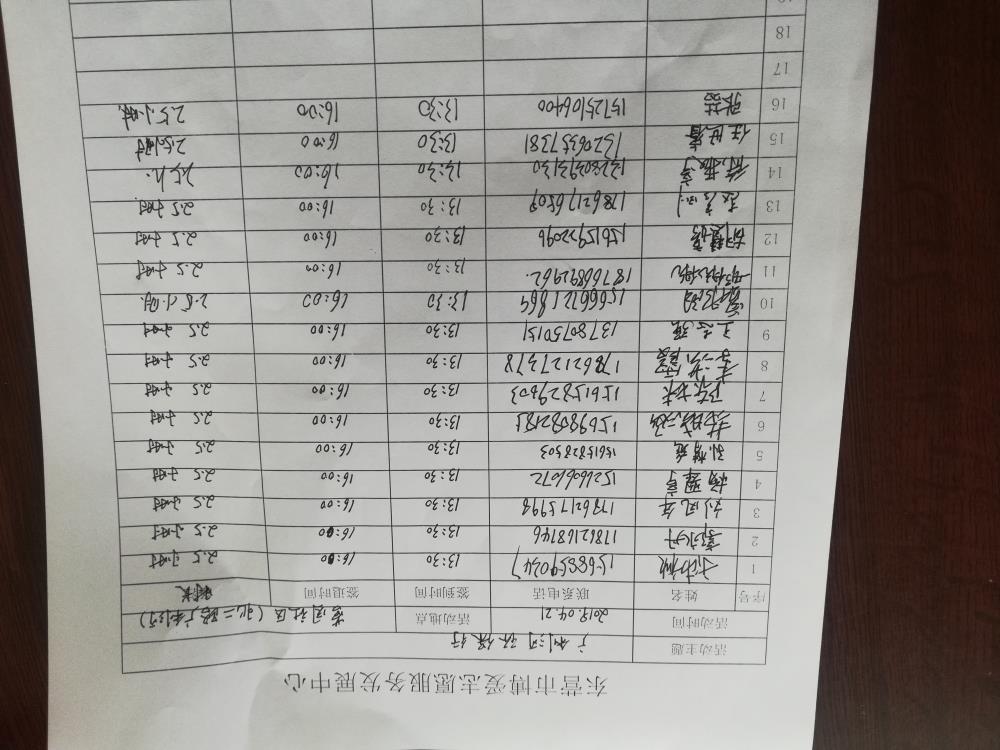 东营市博爱志愿服务发展中心
活动主题 广利河环保行
活动时间 2019.04.21 活动地点 社区(北二路广利河)
序号 姓名 联系电话 签到时间 签退时间 时长
1 15688590347 13:30 16:00 2.5小时
2 17862168746 13:30 16:00 2.5小时
3 刘凤年 17862175998 13:30 16:00 2.5小时
4 杨翠亭 1526606072 13:30 16:00 2.5小时
5 孙梦苑 15615828503 13:30 16:00 2.5小时
6 15698088218 13:30 16:00 2.5小时
7 陈林 15615829603 13:30 16:00 2.5小时
8 李次霞 17862127378 13:30 16:00 2.5小时
9 王志强 13780750151 13:30 16:00 2.5小时
10 15666721864 13:30 16:00 2.5小时
11 18760892962. 13:30 16:00 2.5小时
12 15615922096 13:30 16:00 2.5小时
13 17862176509 13:30 16:00 2.5小时.
14 13280393130 13:30 16:00 2.5h.
15 任世春 13206357381 13:30 16:00 2.5小时
16 张喆 15725106400 13:30 16:00 2.5小时.
17
18
19